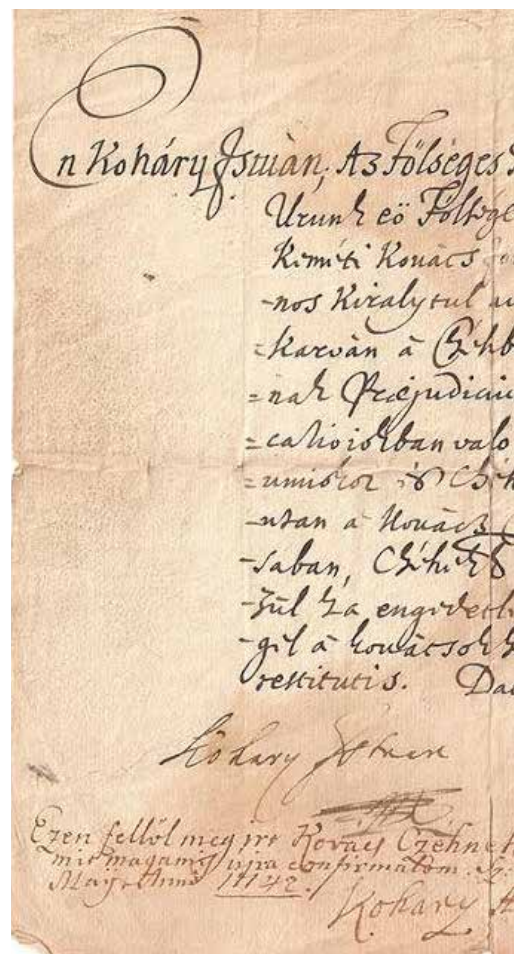 En Koháry Istuàn, Az Fölséges
Urunk eö Fölsége
Kovács
-nos Kiralytul
=karván à Chéhb
=nak Præjudiciu
=catioiokban valo
=umiskor és Chéh
-utan a Kovács
-saban,
-zül ha engedetle
-gil à kovácsok
restitutis. Da
Kohary Istvan
Ezen fellöl meg irt Kovacs Czehnek
mie magamis ujra confirmalom.
Maji Anni 1742.
Kohary